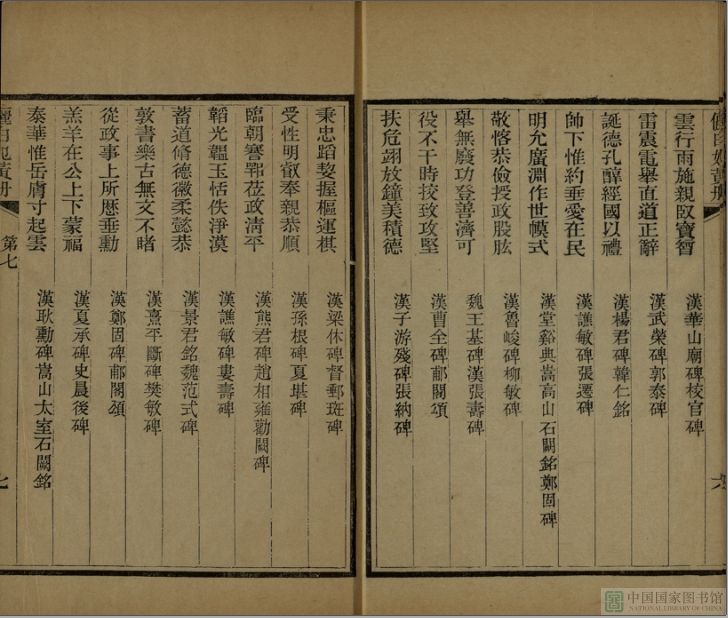 雲行雨施親臤寶智 漢華山廟碑校官碑
雷震電舉直道正辭 漢武榮碑郭泰碑
誕德孔醇經國以禮 漢楊君碑韓仁銘
帥下惟約垂愛在民 漢譙敏碑張遷碑
明允廣淵作世幙式 漢堂谿典嵩高山石闕銘鄭固碑
敬恪恭儉授政股肱 漢魯峻碑柳敏碑
舉無廢功登善濟可 魏王基碑漢張壽碑
役不干時㧉致攻堅 漢曹全碑郙閣頌
扶危翊放鐘美積德 漢子游殘碑張納碑
六
秉忠蹈㓞握樞運棋 漢梁休碑督郵班碑
受性明叡奉親恭順 漢孫根碑夏堪碑
臨朝謇鄂莅政清平 漢熊君碑趙相雍勸闕碑
韜光韞玉恬佚淨漠 漢譙敏碑婁壽碑
蓄道脩德徽柔懿恭 漢景君銘魏范式碑
敦書樂古無文不睹 漢熹平斷碑樊敏碑
從政事上所歷垂勳 漢鄭固碑郙閣頌
羔羊在公上下蒙福 漢夏承碑史晨後碑
泰華惟岳膚寸起雲 漢耿勳碑嵩山太室石闕銘
第七
七
中国国家图书馆
NATIONAL LIBRARY OF CHINA